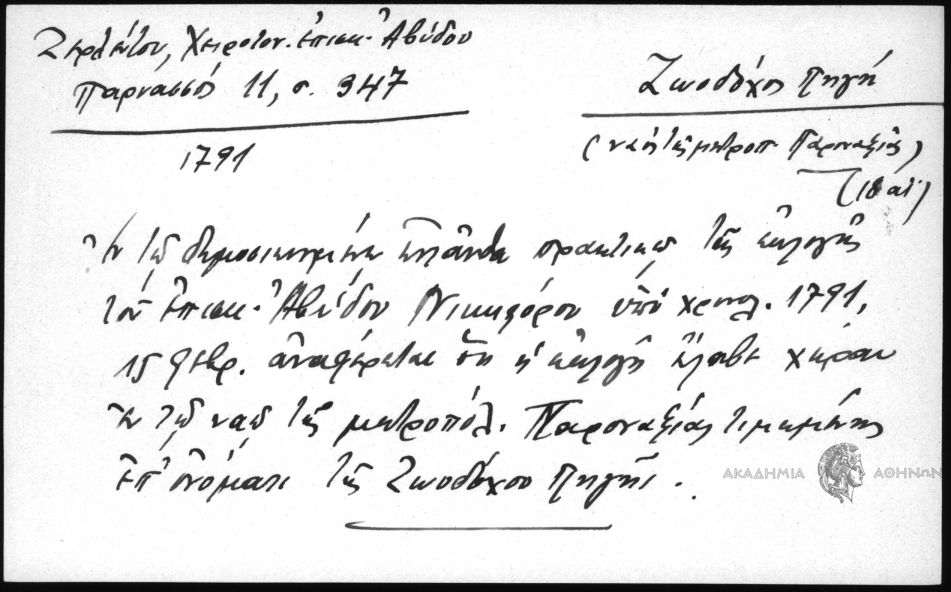 Ζερλέντου, Χειροτον. ἐπισκ. Ἀβύδου
Παρνασσός 11, σ. 347
1791
Ζωοδόχος Πηγή
(ναός τῆς μητροπ. Παροναξίας)
(18 αἰ)
Ἐν τῷ δημοσιευομένῳ ἐνταῦθα πρακτικῷ τῆς ἐκλογῆς
τοῦ ἐπισκ. Ἀβύδου Νικηφόρου ὑπό χρονολ. 1791,
15 Φεβρ. ἀναφέρεται ὅτι ἡ ἐκλογή ἔλαβε χώραν
ἐν τῷ ναῷ τῆς μητροπόλ. Παροναξίας τιμωμένης
ἐπ' ὀνόματι τῆς Ζωοδόχου Πηγῆς.
ΑΚΑΔΗΜΙΑ ΑΘΗΝΩΝ